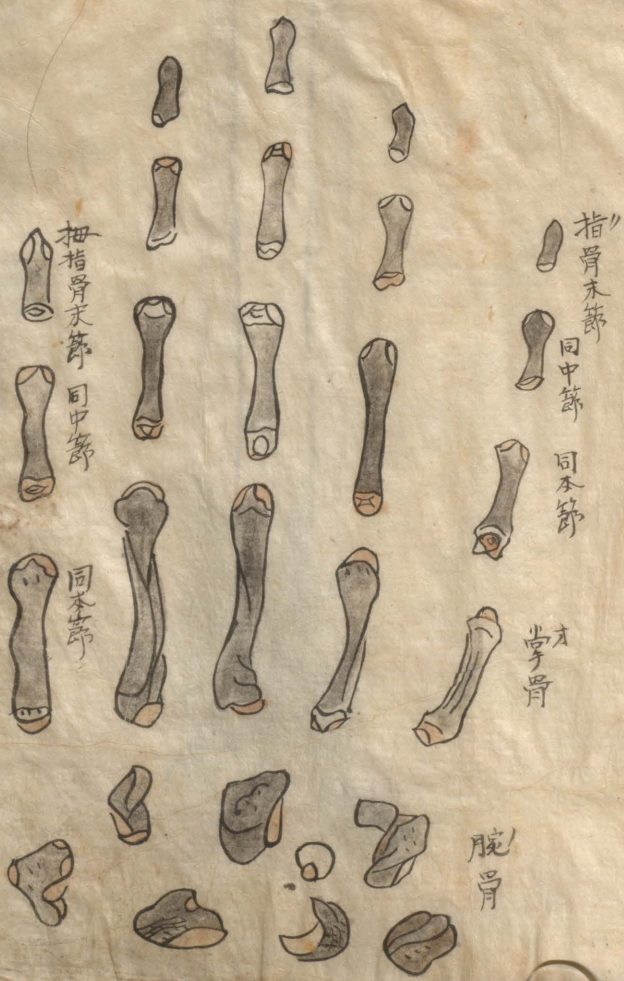 指骨末節
同中節
同本節
掌骨
腕骨
拇指骨末節
同中節
同本節